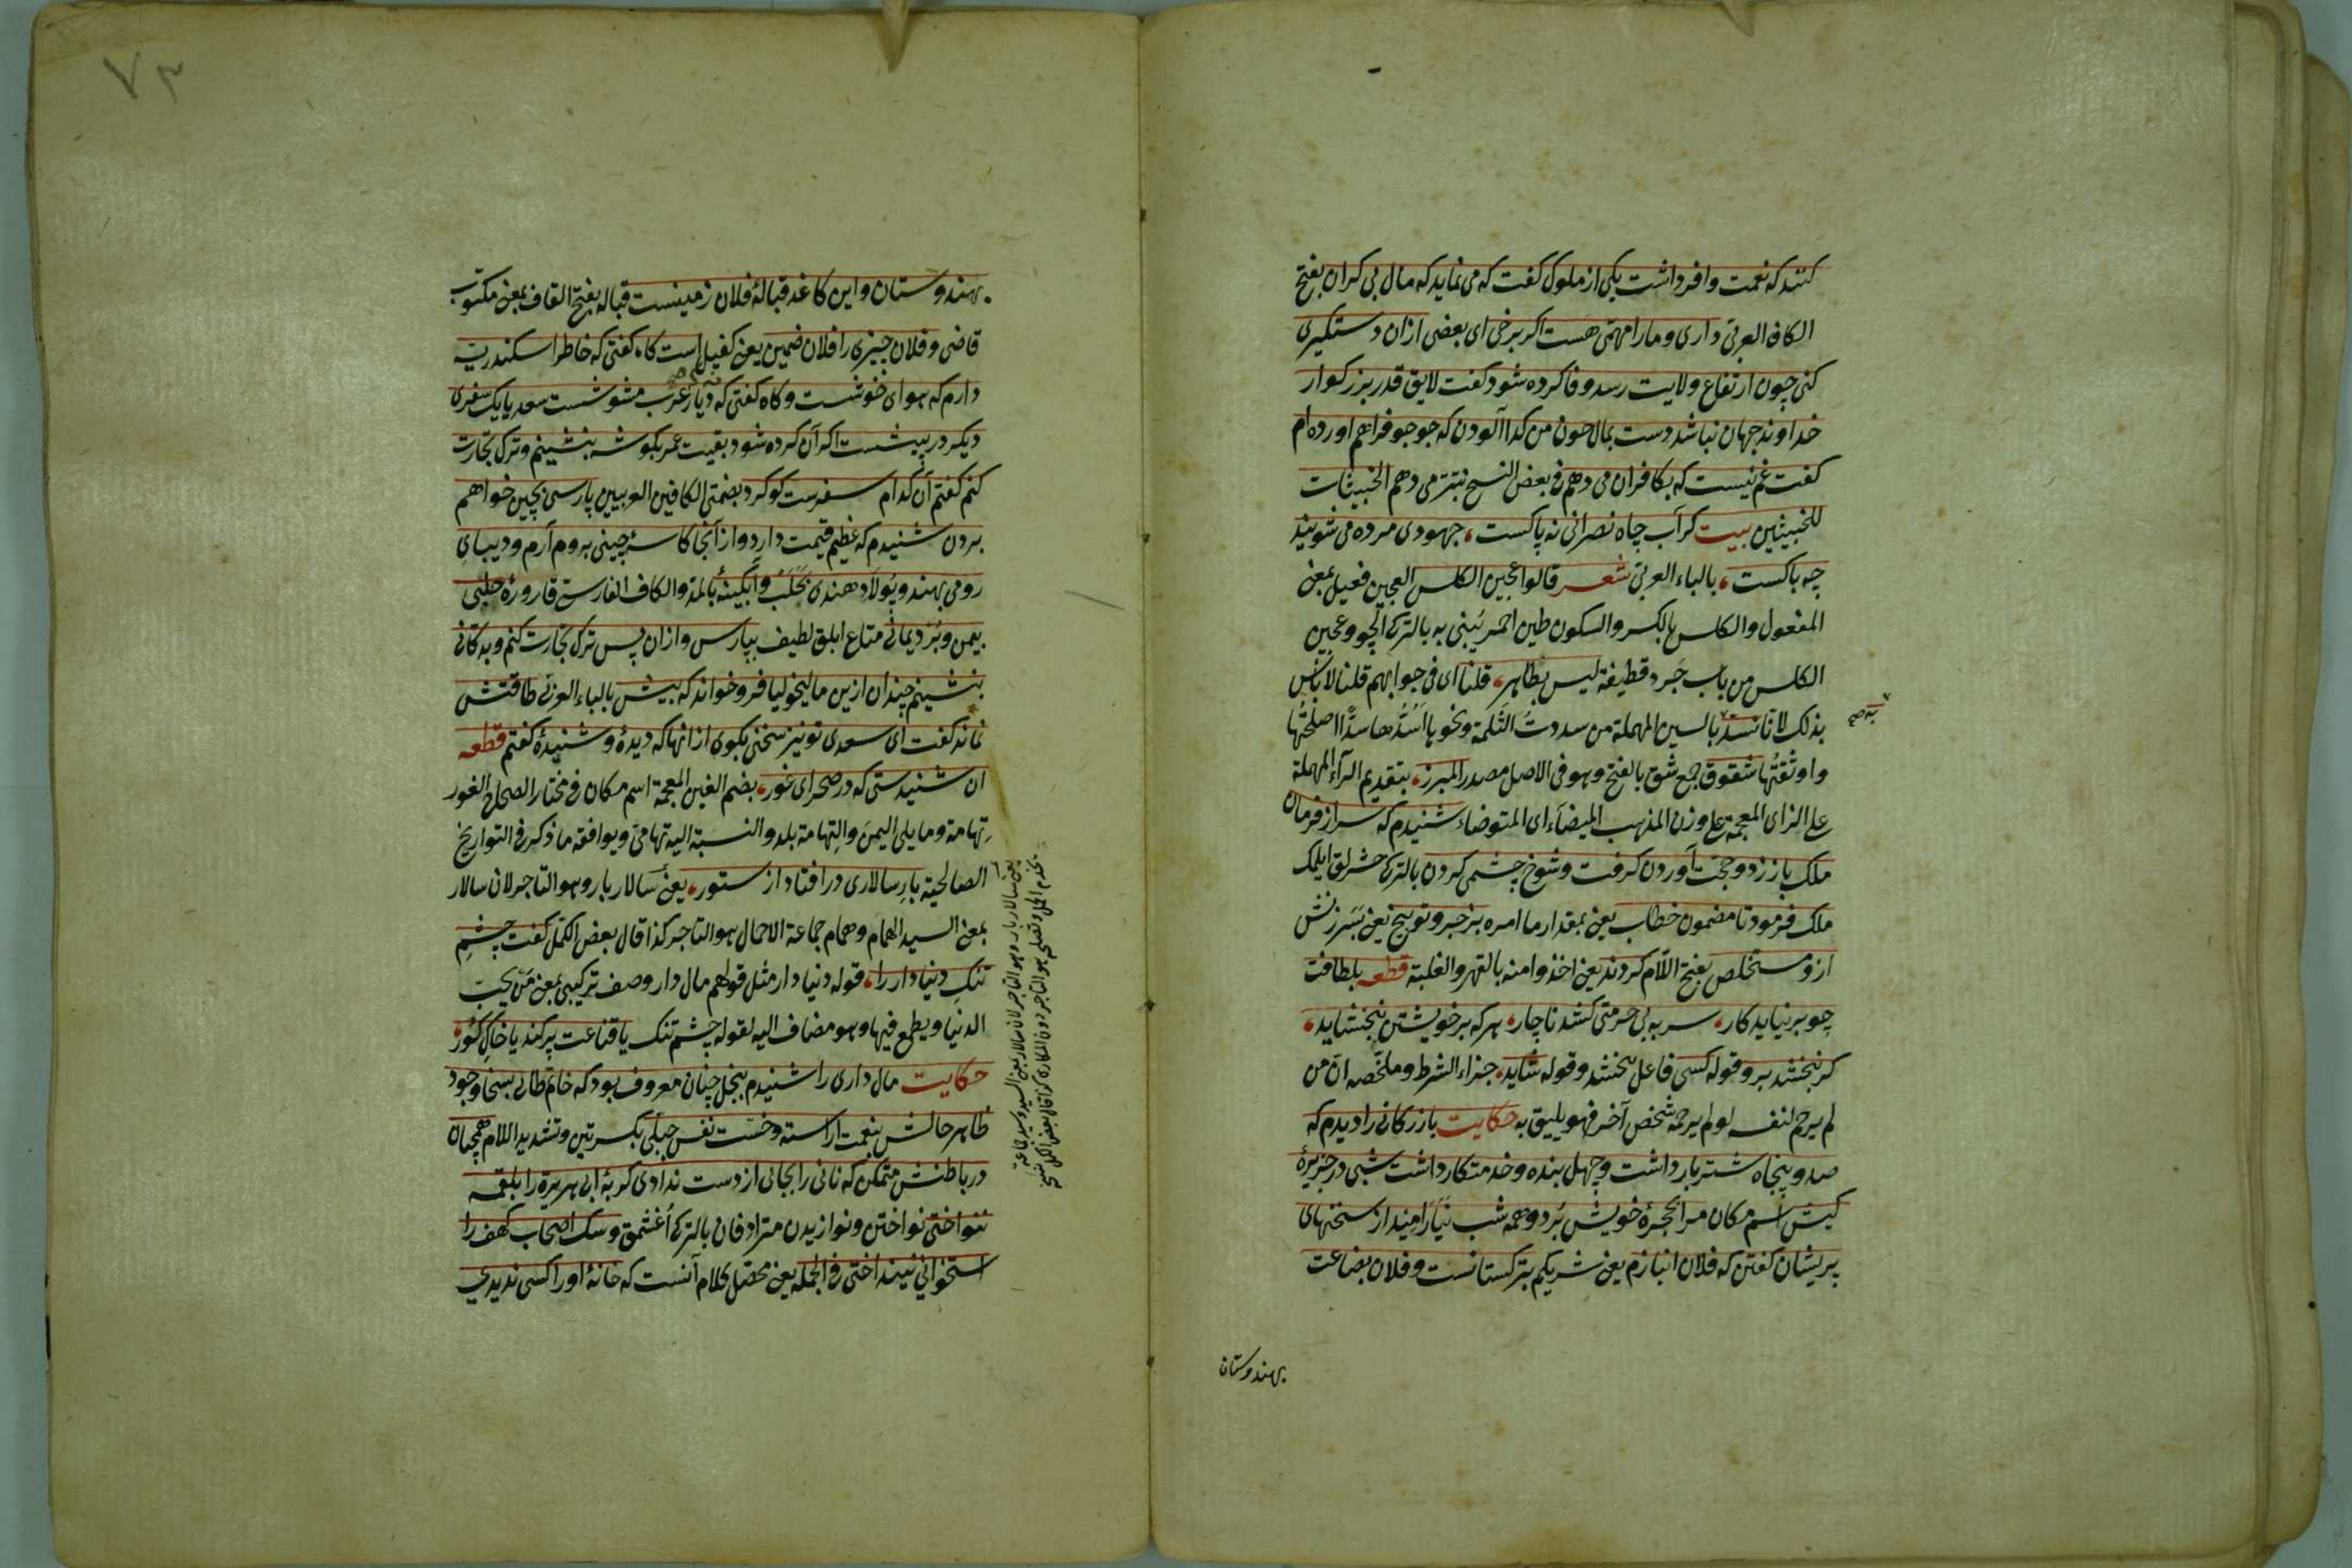 کنند که نعمت وافر داشت یکی از ملوک گفت که می نماید که مال بی کران بفتح
الکاف العربی داری و ما را مهمی هست اگر برخی ای بعضی از ان دستگیری
کنی چون ارتفاع ولایت رسد وفا کرده شود گفت لایق قدر بزرگوار
خداوند جهان نباشد دست بمال چون من گدا آلودن که جو جو فراهم اورده ام
گفت غم نیست که بکافران می دهم فی بعض النسخ بتتر می دهم الخبیثات
للخبیثین بیت گر آب چاه نصرانی نه پاکست، جهودی مرده می شویند
چه باکست، بالباء العربی شعر قالوا عجین الکلس العجین فعیل بمعنی
المفعول والکلس بالکسر والسکون طین احمر یبنی به بالترکی الچو وعجین
الکلس من باب جرد قطیفة لیس بطاهر، قلنا ای فی جوابهم قلنا لا باس
بذلک لانا نسد بالسین المهملة من سددت الثلمة ونحوها اسدها سدا اصلحتها
واوثقتها شقوق جمع شق بالفتح وهو فی الاصل مصدر المبرز، بتقدیم الراء المهملة
علی الزای المعجمة علی وزن المذهب المیضاء ای المتوضاء شنیدم که سر از فرمان
ملک باز زد و حجت آوردن گرفت وشوخ چشمی کردن بالترکی
ملک فرمود تا مضمون خطاب یعنی بمقدار ما امره بزجر وتوبیخ یعنی بسرزنش
ازو مستخلص بفتح اللام کردند یعنی اخذوا منه بالقهر والغلبة قطعه بلطافت
چو برنیاید کار، سر به بی حرمتی کشد ناچار، هر که بر خویشتن نبخشاید،
گر نبخشد برو قوله کسی فاعل نبخشد وقوله شاید، جزاء الشرط وملخصه ان من
لم یرحم لنفسه لو لم یرحمه شخص آخر فهو یلیق به حکایت بازرگانی را دیدم که
صد و پنجاه شتر بار داشت و چهل بنده و خدمتکار داشت شبی در جزیرهٔ
کیش اسم مکان مرا بحجرهٔ خویش برد و همه شب نیارامید از سخنهای
پریشان گفتن که فلان انبازم یعنی شریکم بترکستانست و فلان بضاعت
بهندوستان
بهندوستان و این کاغد قبالهٔ فلان زمینست قباله بفتح القاف بمعنی مکتوب
قاضی و فلان چیزی را فلان ضمین یعنی کفیل است گاه گفتی که خاطر اسکندریه
دارم که هوای خوشست و گاه گفتی که دیار غرب مشوشست سعدیا یک سفری
دیگر در پیشست اگر آن کرده شود بقیت عمر بگوشه بنشینم و ترک تجارت
کنم گفتم آن کدام سفرست گوگرد بضمتی الکافین العربیین پارسی بچین خواهم
بردن شنیدم که عظیم قیمت دارد و از آنجا کاسهٔ چینی بروم آرم و دیبای
رومی بهند و پولاد هندی بحلب و آبگینهٔ بالمد والکاف الفارسی قارورهٔ حلبی
بیمن و برد یمانی متاع ابلق لطیف بپارس و ازان پس ترک تجارت کنم و بدکانی
بنشینم چندان ازین مالیخولیا فرو خواند که بیش بالباء العربی طاقتش
نماند گفت ای سعدی تو نیز سخنی بگوی از انها که دیدهٔ و شنیدهٔ گفتم قطعه
ان شنیدستی که در صحرای غور، بضم الغین المعجمة اسم مکان فی مختار الصحاح الغور
تهامة وما یلی الیمن والتهامة بلد والنسبة الیه تهامی ویوافقه ما ذکر فی التواریخ
الصالحیة بار سالاری در افتاد از ستور، یعنی سالار بار وهو التاجر لان سالار
بمعنی السید الهمام وهمام جماعة الاحمال هو التاجر کذا قال بعض الکمل گفت چشم
تنگ دنیا دار را، قوله دنیا دار مثل قولهم مال دار وصف ترکیبی بمعنی من یحب
الدنیا ویطمع فیها وهو مضاف الیه لقوله چشم تنگ یا قناعت پر کند یا خاک گور،
حکایت مال داری را شنیدم ببخل چنان معروف بود که حاتم طائی بسخا و جود
ظاهر حالش بنعمت اراسته و خست نفس جبلی بکسرتین وتشدید اللام همچنان
در باطنش متمکن که نانی را بجانی از دست ندادی گربهٔ ابی هریره را بلقمه
ننواختی نواختن ونوازیدن مترادفان بالترکی اغشمق و سگ اصحاب کهف را
استخوانی نینداختی فی الجمله یعنی محصل کلام آنست که خانهٔ او را کسی ندیدی